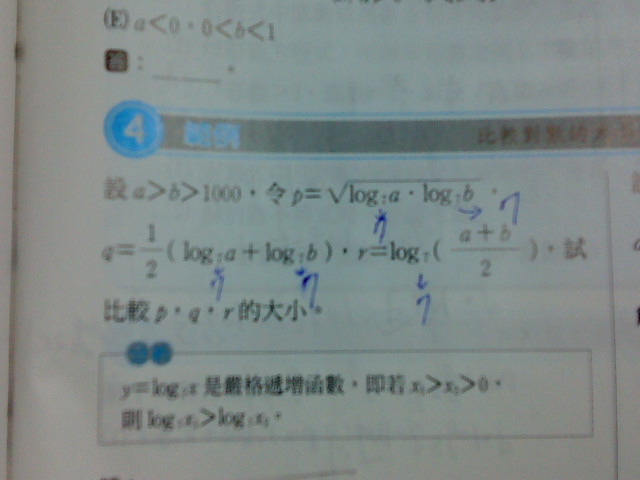 (E) a<0,0<b<1
答:______。
4 範例 比較對數的大
設 a>b>1000,令 p=√(log₇a·log₇b),7
q=1/2(log₇a+log₇b),r=log₇(a+b/2),試
7 7 7 7
比較 p,q,r 的大小。
y=log₇x 是嚴格遞增函數,即若 x₁>x₂>0,
則 log₇x₁>log₇x₂。